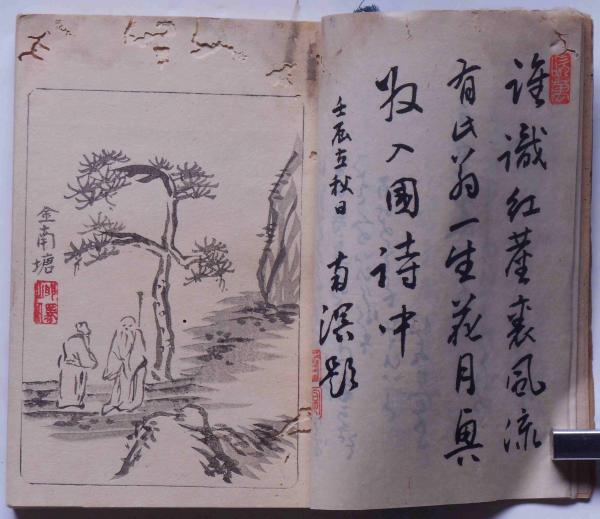 誰識紅塵裏風流
有此翁一生花月興
收入圖詩中
壬辰立秋日 南溟題
金南塘